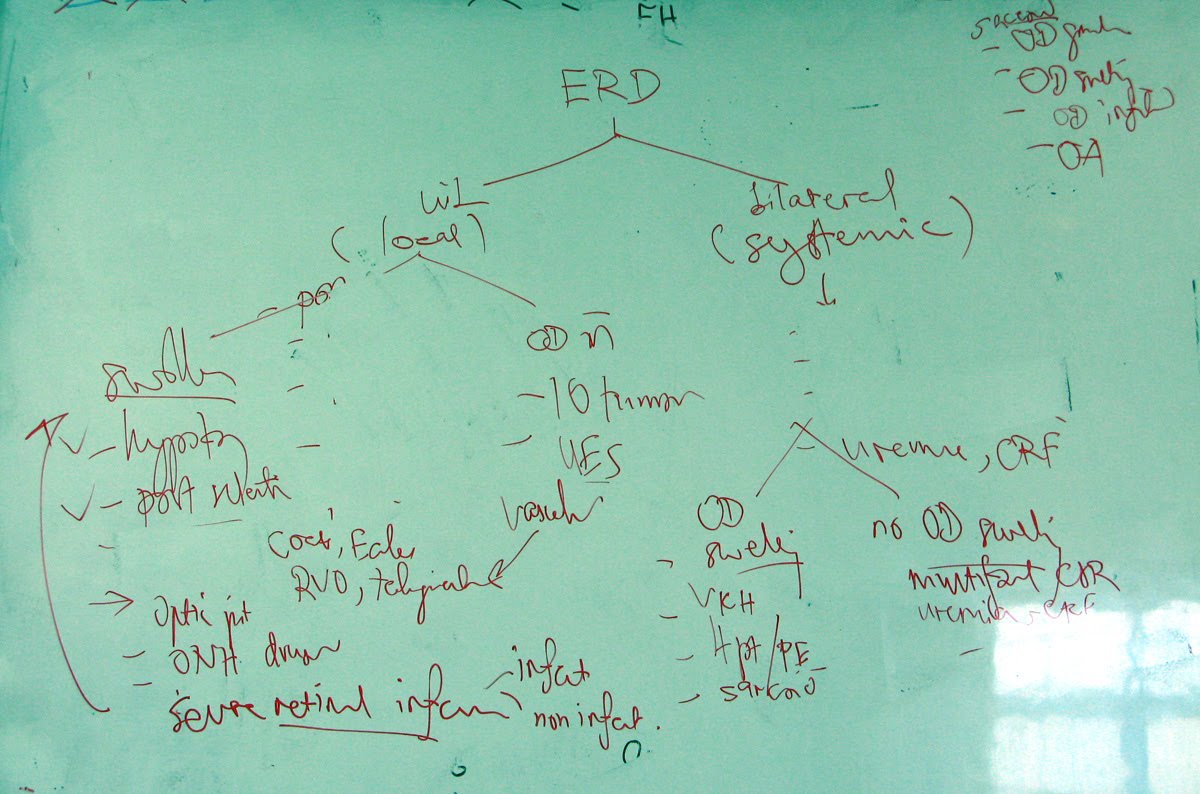 FH
ERD
sarcoid
- OD
- OD swelling
- OD
- OA
U/L
(local)
bilateral
(systemic)
swollen
OD n
- 10 tumor
- UES
- hypotony
- post
Coats, Eales
RVO,
optic pit
- ONH drusen
- severe retinal inflam
infect
non infect.
- uremia, CRF
OD
swelling
VKH
- Hpt/PE
- sarcoid
no OD swelling
multifocal CSR
uremia, CRF